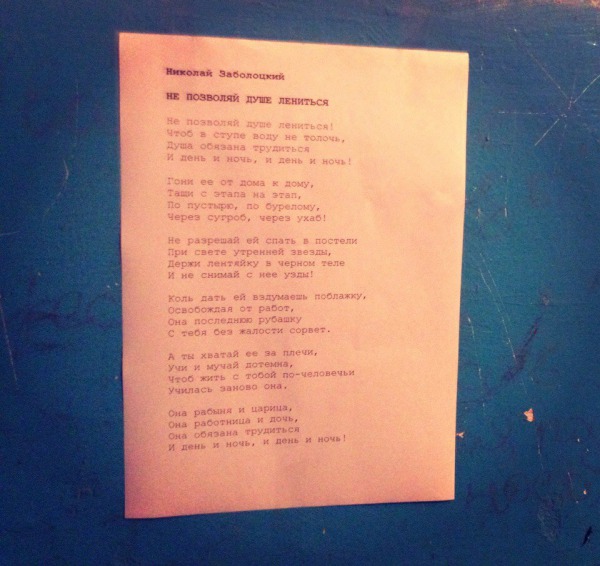 Николай Заболоцкий
НЕ ПОЗВОЛЯЙ ДУШЕ ЛЕНИТЬСЯ
Не позволяй душе лениться!
Чтоб в ступе воду не толочь,
Душа обязана трудиться
И день и ночь, и день и ночь!
Гони ее от дома к дому,
Тащи с этапа на этап,
По пустырю, по бурелому,
Через сугроб, через ухаб!
Не разрешай ей спать в постели
При свете утренней звезды,
Держи лентяйку в черном теле
И не снимай с нее узды!
Коль дать ей вздумаешь поблажку,
Освобождая от работ,
Она последнюю рубашку
С тебя без жалости сорвет.
А ты хватай ее за плечи,
Учи и мучай дотемна,
Чтоб жить с тобой по-человечьи
Училась заново она.
Она рабыня и царица,
Она работница и дочь,
Она обязана трудиться
И день и ночь, и день и ночь!